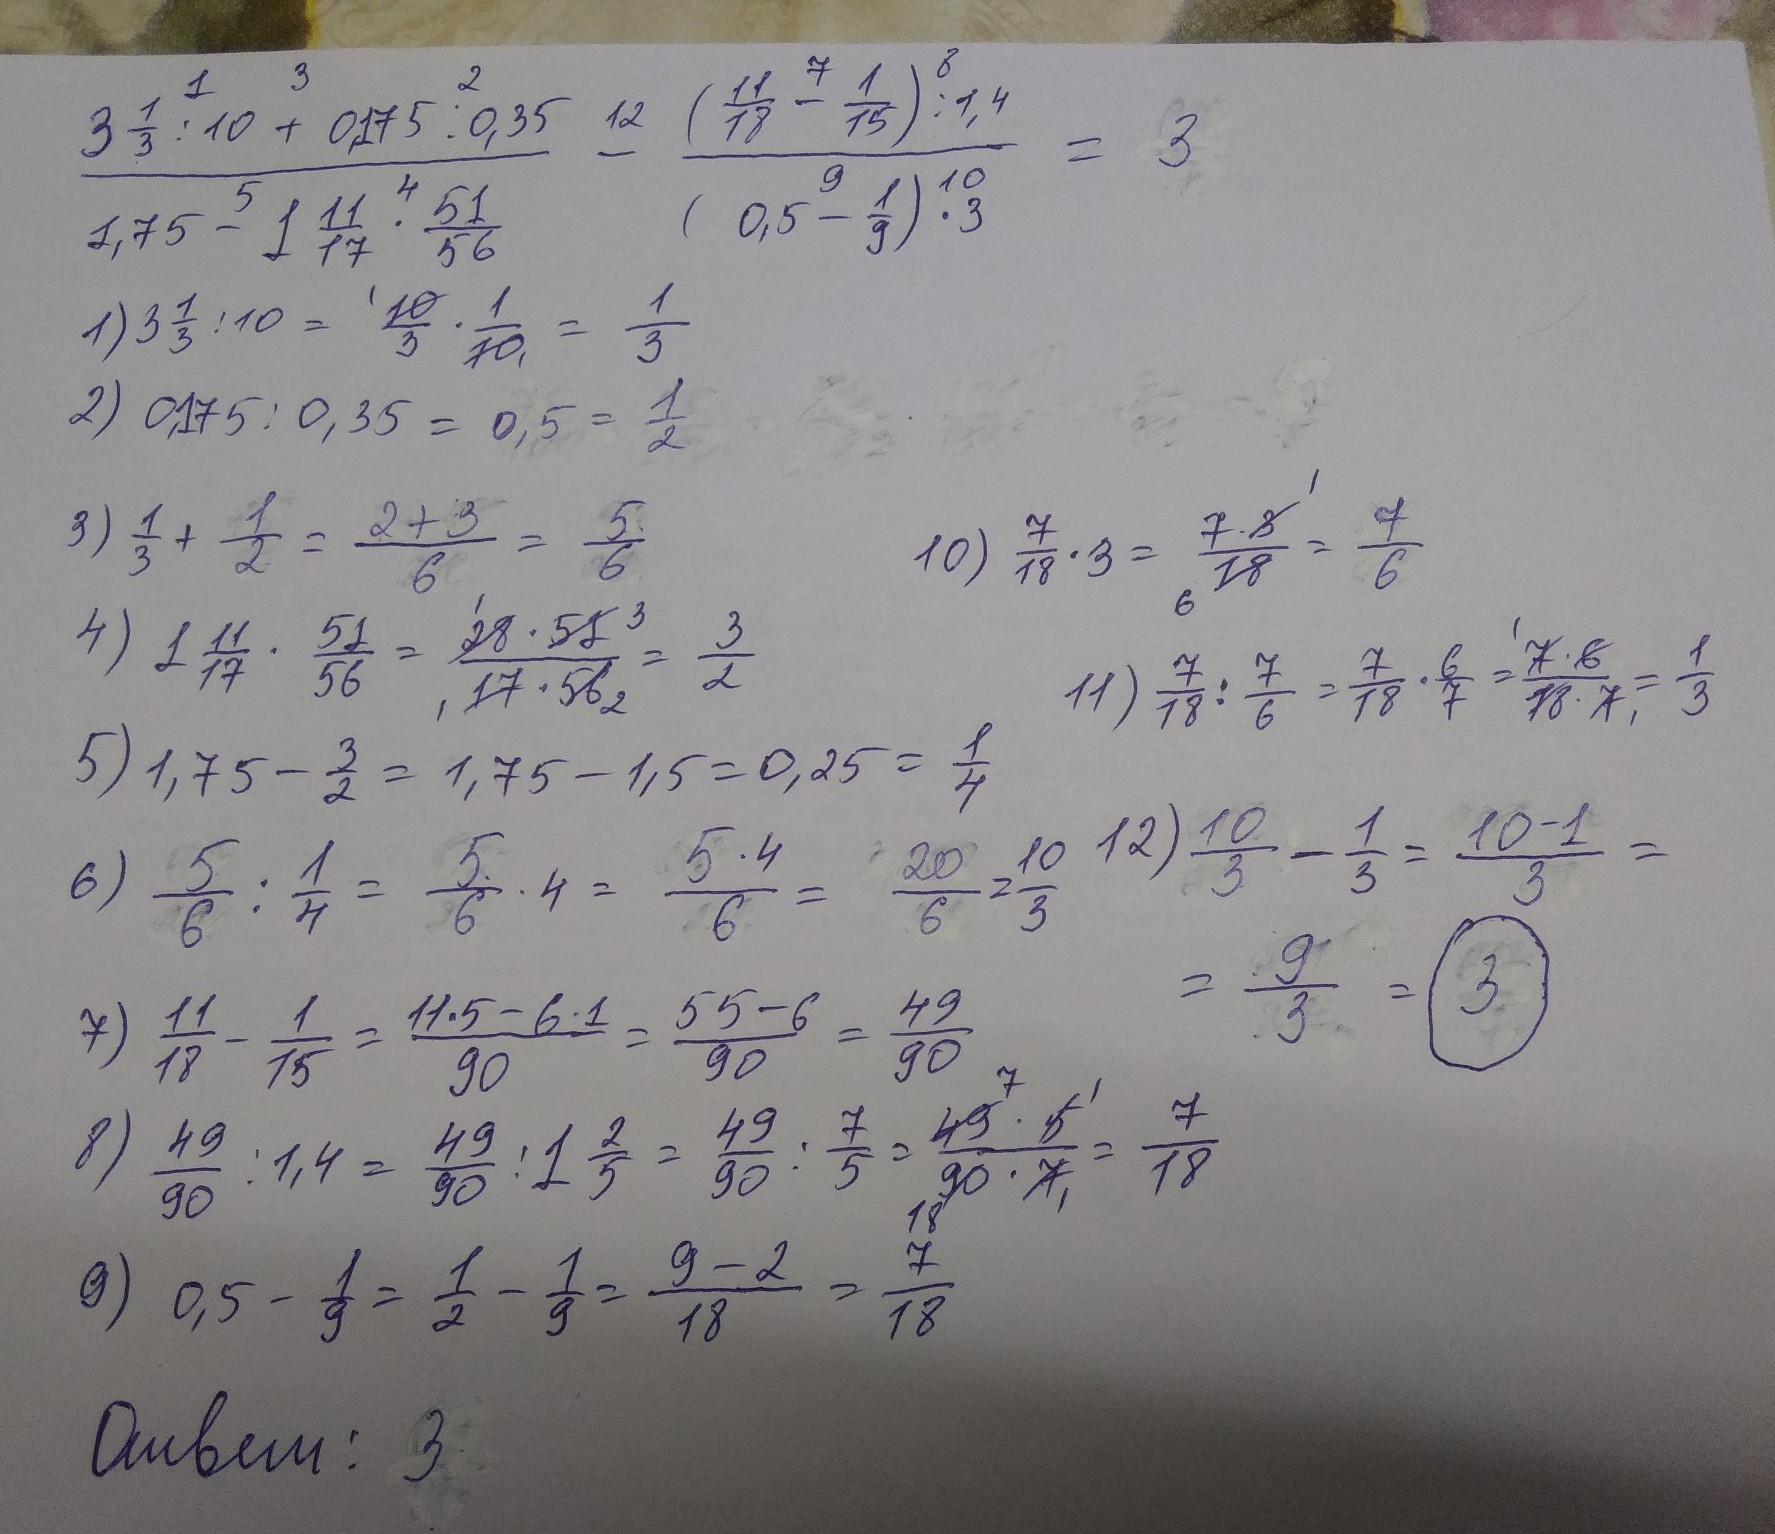 1 3 2 7 8
3 1/3 : 10 + 0,175 : 0,35 12 (11/18 - 1/15) : 1,4
— = 3
5 4 9 10
1,75 - 1 11/17 · 51/56 (0,5 - 1/9) · 3
1) 3 1/3 : 10 = 10/3 · 1/10 = 1/3
2) 0,175 : 0,35 = 0,5 = 1/2
3) 1/3 + 1/2 = (2+3)/6 = 5/6
4) 1 11/17 · 51/56 = (28·51)/(17·56) = 3/2
5) 1,75 - 3/2 = 1,75 - 1,5 = 0,25 = 1/4
6) 5/6 : 1/4 = 5/6 · 4 = (5·4)/6 = 20/6 = 10/3
7) 11/18 - 1/15 = (11·5 - 6·1)/90 = (55-6)/90 = 49/90
8) 49/90 : 1,4 = 49/90 : 1 2/5 = 49/90 : 7/5 = (49·5)/(90·7) = 7/18
9) 0,5 - 1/9 = 1/2 - 1/9 = (9-2)/18 = 7/18
10) 7/18 · 3 = (7·3)/18 = 7/6
11) 7/18 : 7/6 = 7/18 · 6/7 = (7·6)/(18·7) = 1/3
12) 10/3 - 1/3 = (10-1)/3 =
= 9/3 = 3
Ответ: 3